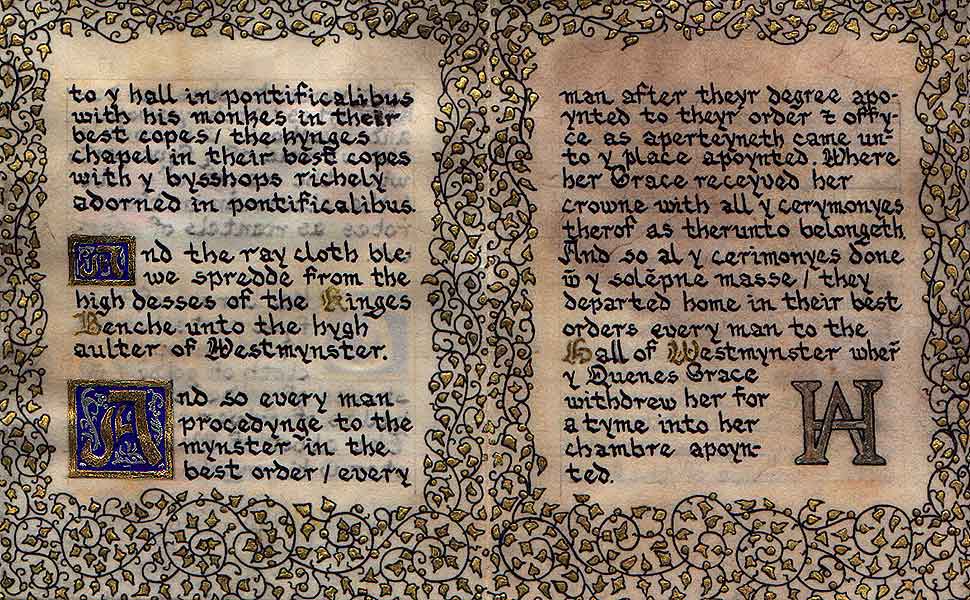 to y hall in pontificalibus
with his monkes in their
best copes / the kynges
chapel in their best copes
with y bysshops richely
adorned in pontificalibus.
And the ray cloth ble-
we spredde from the
high desses of the Kinges
Benche unto the hygh
aulter of Westmynster.
And so every man
procedynge to the
mynster in the
best order / every
man after theyr degree apo-
ynted to theyr order & offy-
ce as aperteyneth came un-
to y place apoynted. Where
her Grace receyved her
crowne with all y cerymonyes
therof as therunto belongeth.
And so al y cerimonyes done
w̄ y solēpne masse / they
departed home in their best
orders every man to the
Hall of Westmynster wher̄
y Quenes Grace
withdrew her for
a tyme into her
chambre apoyn-
ted.
HA